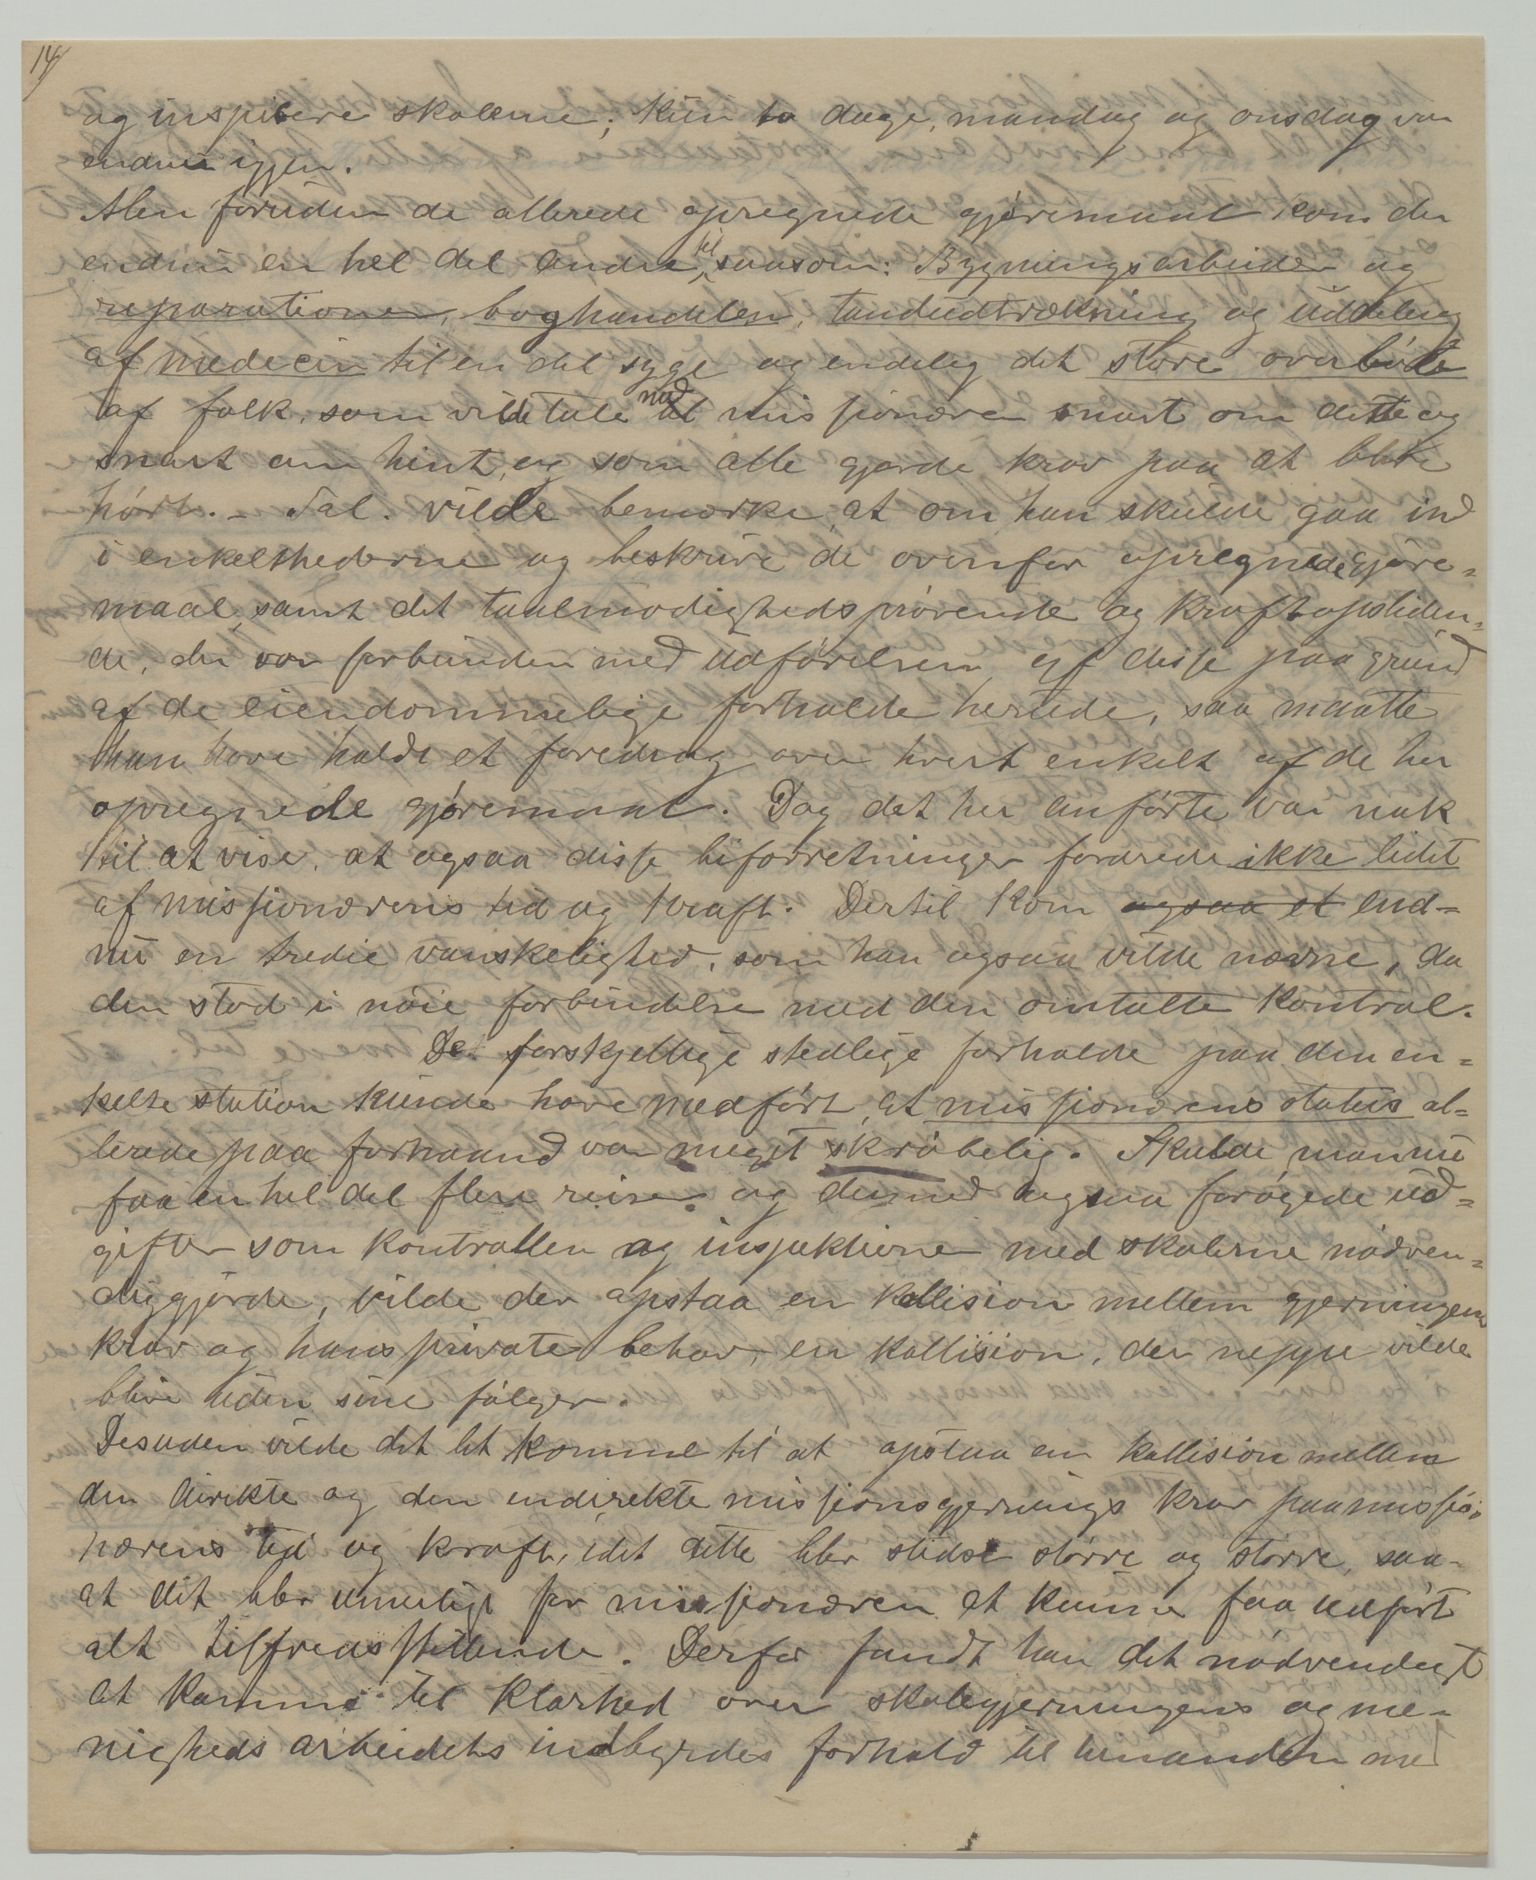 14/
og inspicere skolerne; kun to dage, mandag og onsdag var
endnu igjen.
Men foruden de allerede opregnede gjøremaal kom der
endnu en hel del andre til, saasom: Bygningsarbeider og
reparationer, boghandelen, tandudtrækning og uddeling
af medecin til en del syge og endelig det store overløb
af folk, som vilde tale med missionæren snart om dette og
snart om hint, og som alle gjorde krav paa at blive
hørt. – Tal. vilde bemærke, at om han skulde gaa ind
i enkelthederne og beskrive de ovenfor opregnede gjøre=
maal, samt det taalmodighedsprøvende og kraftopsliden=
de, der var forbunden med udførelsen af disse paa grund
af de eiendommelige forholde hernede, saa maatte
han have holdt et foredrag over hvert enkelt af de her
opregnede gjøremaal. Dog det her anførte var nok
til at vise, at ogsaa disse biforretninger fordrede ikke lidet
af missionærens tid og kraft. Dertil kom ogsaa et end=
nu en tredie vanskelighed, som han ogsaa vilde nævne, da
den stod i nøie forbindelse med den omtalte kontrol.
De forskjellige stedlige forholde paa den en=
kelte station kunde have medført, at missionærens status al=
lerede paa forhaand var meget skrøbelig. Skulde man nu
faa en hel del flere reiser og dermed ogsaa forøgede ud=
gifter som kontrollen og inspektione med skolerne nødven=
diggjorde, vilde der opstaa en kollision mellem gjerningens
krav og hans private behov, en kollision, der neppe vilde
blive uden sine følger.
Desuden vilde det let komme til at opstaa en kollision mellem
den direkte og den indirekte missionsgjernings krav paa missio=
nærens tid og kraft, idet dette blev stedse større og større, saa=
at det blev umuligt for missionæren at kunne faa udført
alt tilfredsstillende. Derfor fandt han det nødvendigt
at komme til klarhed over skolegjerningens og me=
nighedsarbeidets indbyrdes forhold til hinanden med